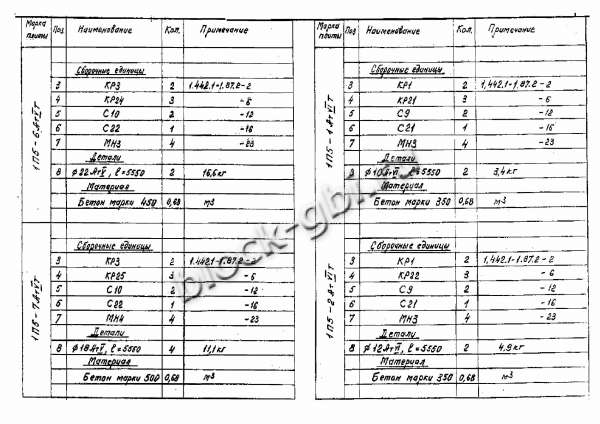 Марка плиты Поз Наименование Кол. Примечание
1П5-6АтVIТ
Сборочные единицы
3 КР3 2 1.442.1-1.87.2-2
4 КР24 3 -6
5 С10 2 -12
6 С22 1 -16
7 МН3 4 -23
Детали
8 ф22АтVI, ℓ=5550 2 16,6кг
Материал
Бетон марки 450 0,68 м3
1П5-7АтVIТ
Сборочные единицы
3 КР3 2 1.442.1-1.87.2-2
4 КР25 3 -6
5 С10 2 -12
6 С22 1 -16
7 МН4 4 -23
Детали
8 ф18АтVI, ℓ=5550 4 11,1кг
Материал
Бетон марки 500 0,68 м3
Марка плиты Поз Наименование Кол. Примечание
1П5-1АтVIТ
Сборочные единицы
3 КР1 2 1.442.1-1.87.2-2
4 КР21 3 -6
5 С9 2 -12
6 С21 1 -16
7 МН3 4 -23
Детали
8 ф10АтVI, ℓ=5550 2 3,4кг
Материал
Бетон марки 350 0,68 м3
1П5-2АтVIТ
Сборочные единицы
3 КР1 2 1.442.1-1.87.2-2
4 КР22 3 -6
5 С9 2 -12
6 С21 1 -16
7 МН3 4 -23
Детали
8 ф12АтVI, ℓ=5550 2 4,9кг
Материал
Бетон марки 350 0,68 м3
block-gbi.ru